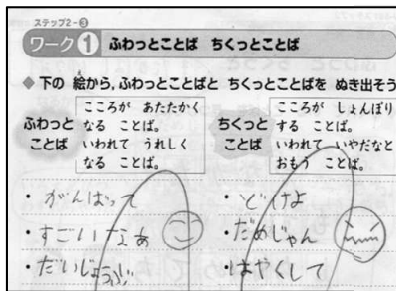 ステップ2-③
ワーク1 ふわっとことば ちくっとことば
◆ 下の 絵から、ふわっとことばと ちくっとことばを ぬき出そう
ふわっと ことば
こころが あたたかく
なる ことば。
いわれて うれしく
なる ことば。
ちくっと ことば
こころが しょんぼり
する ことば。
いわれて いやだなと
おもう ことば。
・がんばって
・すごいなあ
・だいじょうぶ
・どけよ
・だめじゃん
・はやくして